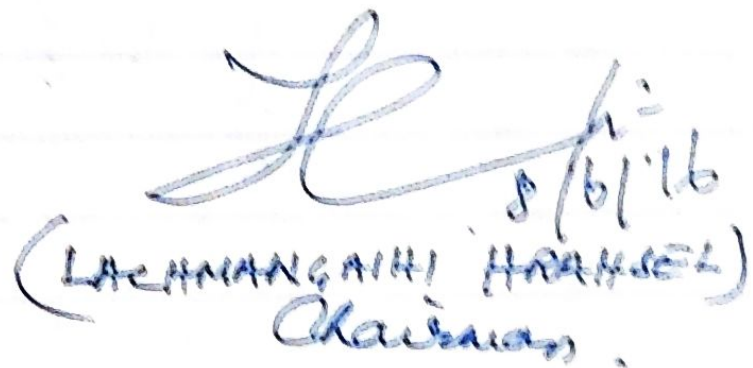 8/6/16
(LALHMANGAIHI HRAHSEL)
Chairman.